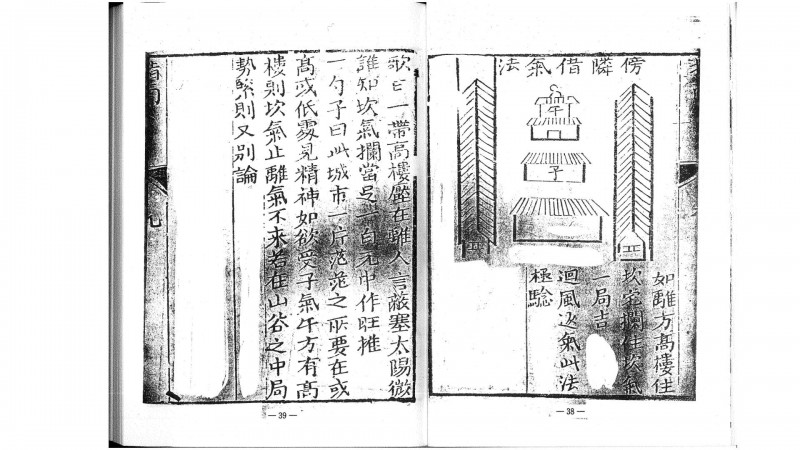 傍隣借氣法
午
子
如離方高樓住
坎宅攔住坎氣
一局吉
迴風返氣此法
極驗
— 38 —
歌曰一帶高樓壓在離人言蔽塞太陽微
誰知坎氣攔當足一白元中作旺推
一勺子曰此城市一片茫茫之所要在或
高或低處見精神如欲受子氣午方有高
樓則坎氣止離氣不來若在山谷之中局
勢緊則又別論
九
— 39 —